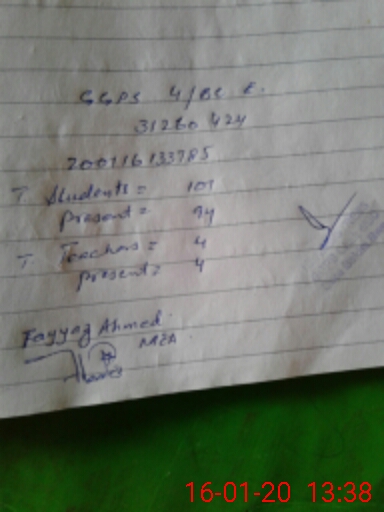 GGPS 4/BC E.
31260424
200116133785
T. Students = 101
present = 94
T. Teachers = 4
present = 4
Fayyaz Ahmed
MEA
16-01-20 13:38